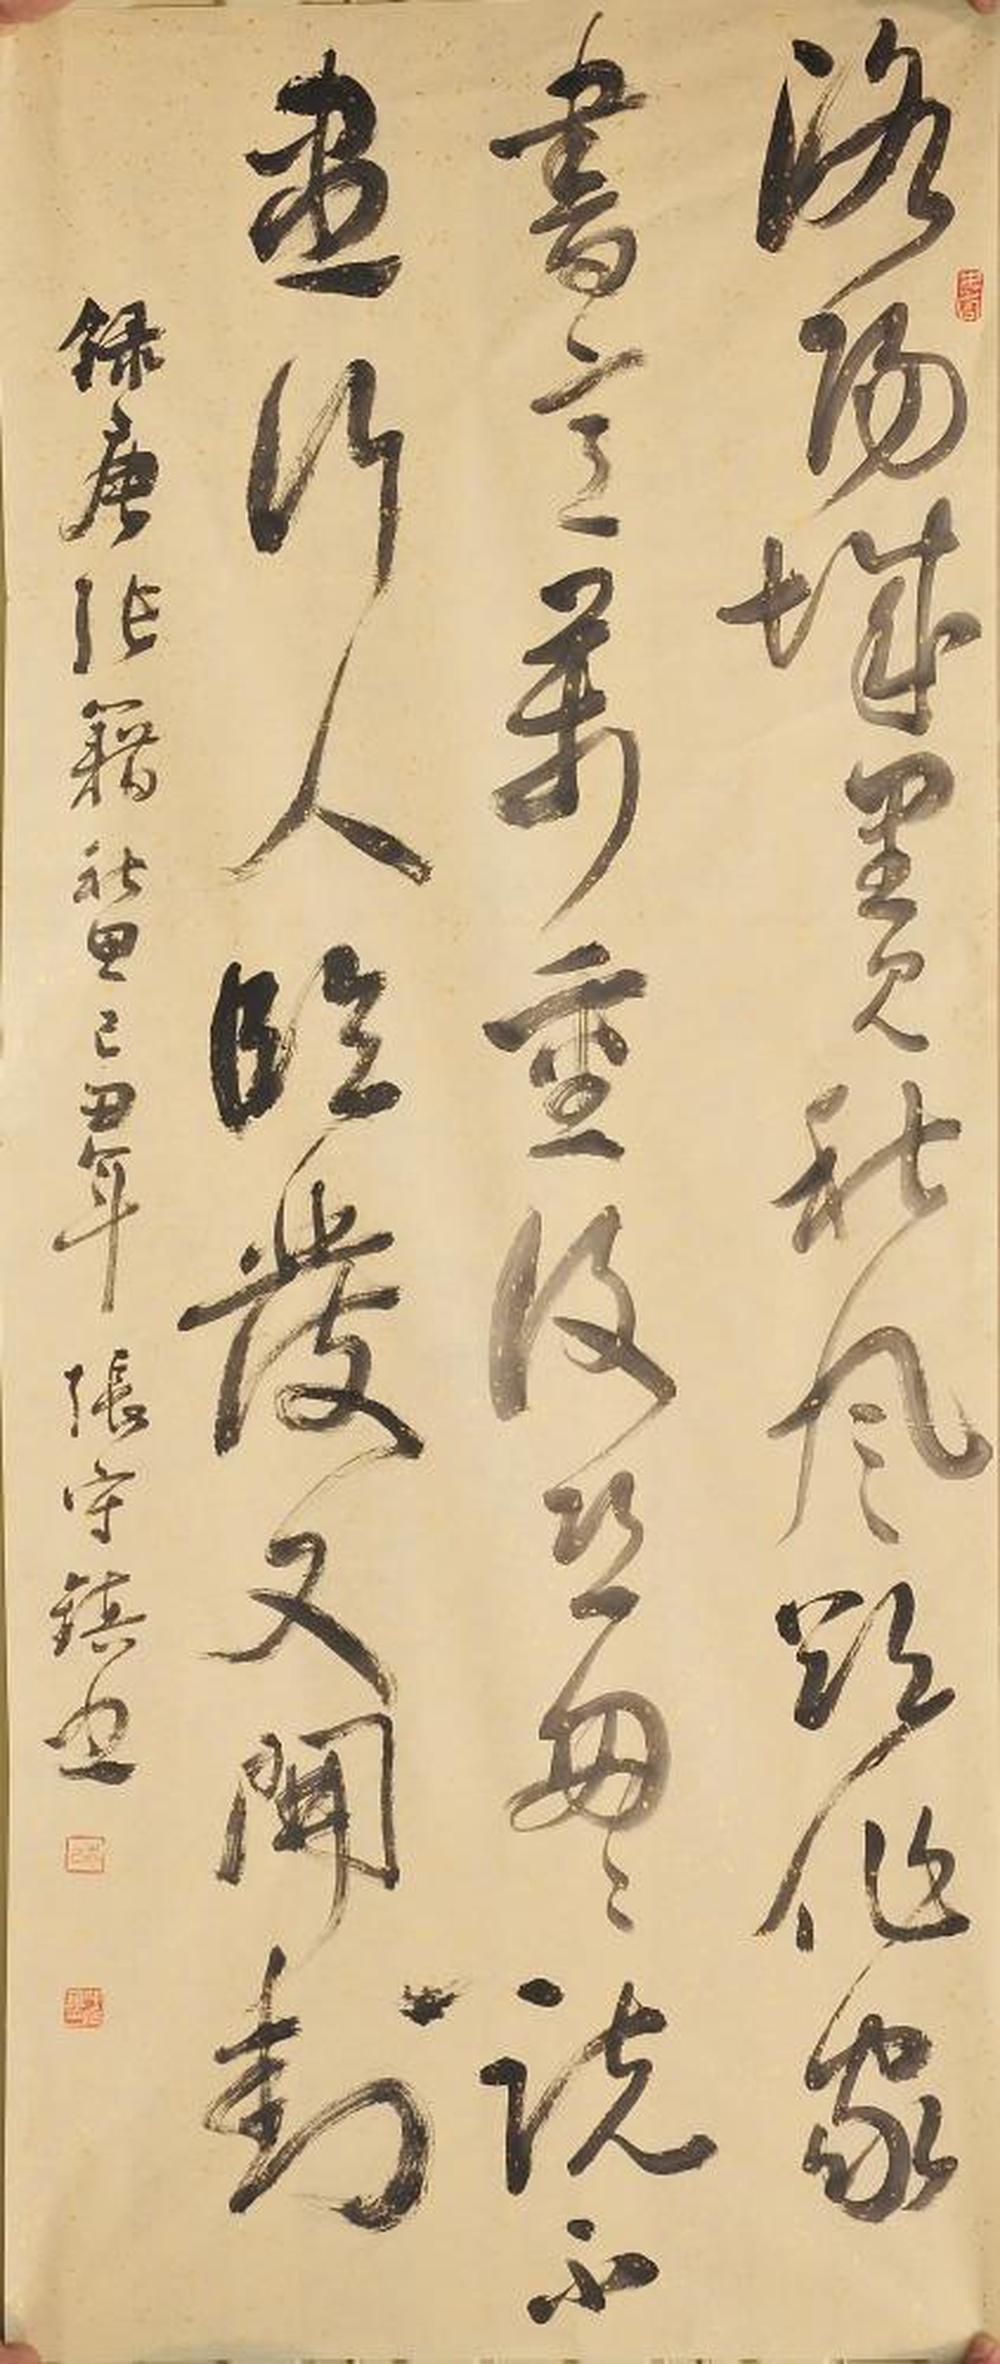 洛陽城里見秋風欲作家
書意萬重復恐匆匆說不
盡行人臨發又開封
錄唐張籍秋思己丑年張守鎮書